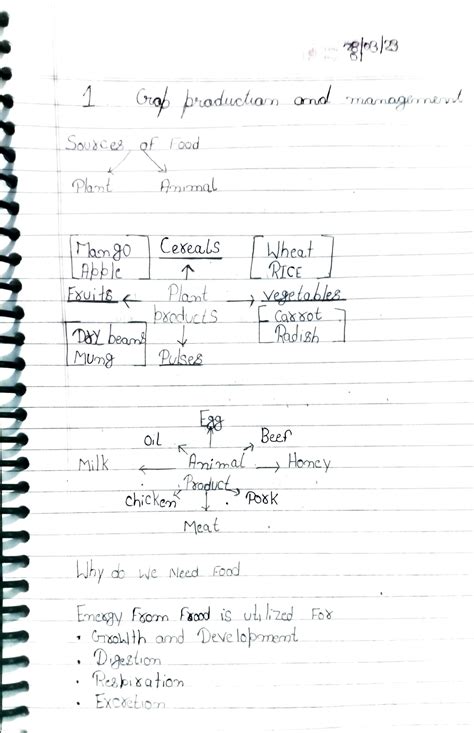 28/03/23
1 Crop production and management
Sources of Food
Plant Animal
Mango Cereals Wheat
Apple RICE
Fruits Plant vegetables
products Carrot
Dry beans Radish
Mung Pulses
Egg
Oil Beef
Milk Animal Honey
Product
chicken Pork
Meat
Why do we Need Food
Energy From Frood is utilized For
• Growth and Development
• Digestion
• Respiration
• Excretion